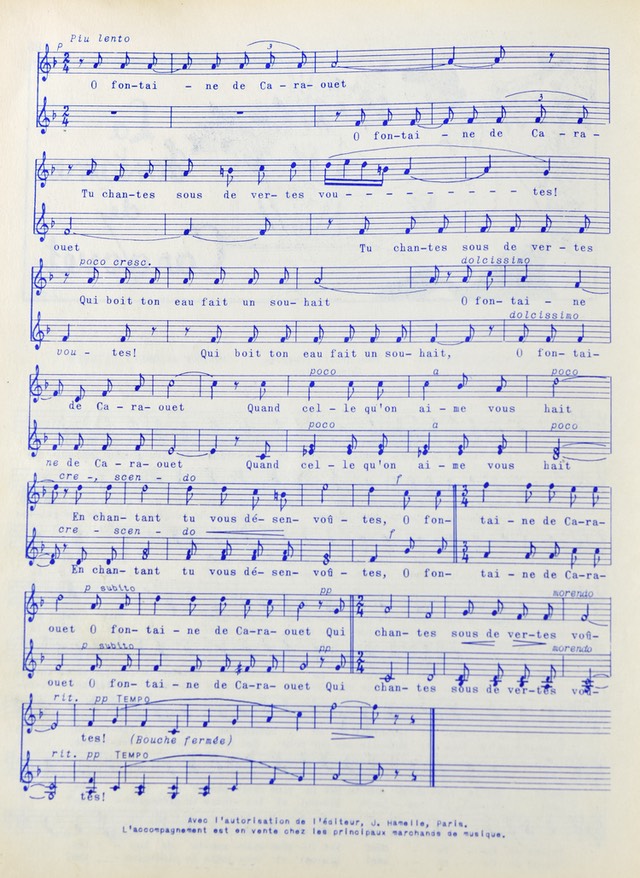 Piu lento
p 3
O fon-tai - ne de Ca-ra-ouet
3
O fon-tai - ne de Ca-ra-
Tu chan-tes sous de ver-tes vou- - - - - - - - - tes!
ouet Tu chan-tes sous de ver-tes
poco cresc. dolcissimo
Qui boit ton eau fait un sou-hait O fon-tai - ne
dolcissimo
vou - tes! Qui boit ton eau fait un sou-hait, O fon-tai-
poco a poco
de Ca-ra-ouet Quand cel-le qu'on ai-me vous hait
poco a poco
ne de Ca-ra-ouet Quand cel-le qu'on ai-me vous hait
cre -, scen - do f
En chan-tant tu vous dé-sen-voû-tes, O fon- tai-ne de Ca-ra-
cre - scen - do f
En chan-tant tu vous dé-sen-voû-tes, O fon- tai-ne de Ca-ra-
p subito pp morendo
ouet O fon-tai-ne de Ca-ra-ouet Qui chan-tes sous de ver-tes voû-
p subito pp morendo
ouet O fon-tai-ne de Ca-ra-ouet Qui chan-tes sous de ver-tes voû-
rit. pp TEMPO
tes! (Bouche fermée)
rit. pp TEMPO
tes!
Avec l'autorisation de l'éditeur, J. Hamelle, Paris.
L'accompagnement est en vente chez les principaux marchands de musique.